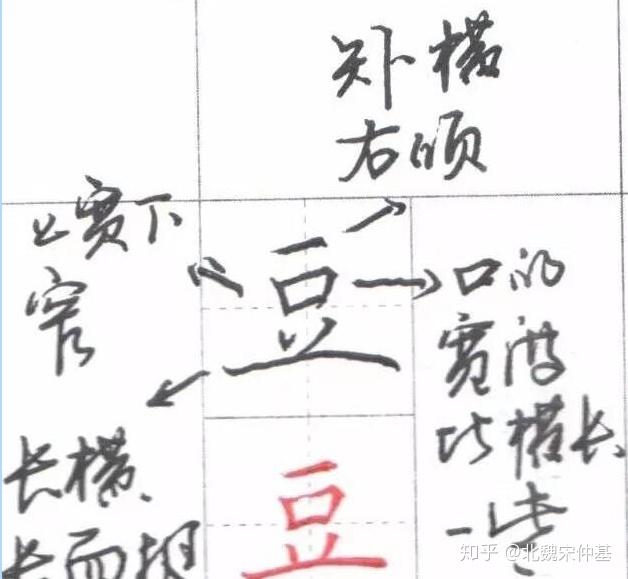 短横
右倾
上宽下
窄
豆
口的
宽度
比横长
一些
长横、
长而
豆
知乎 @北魏宋仲基